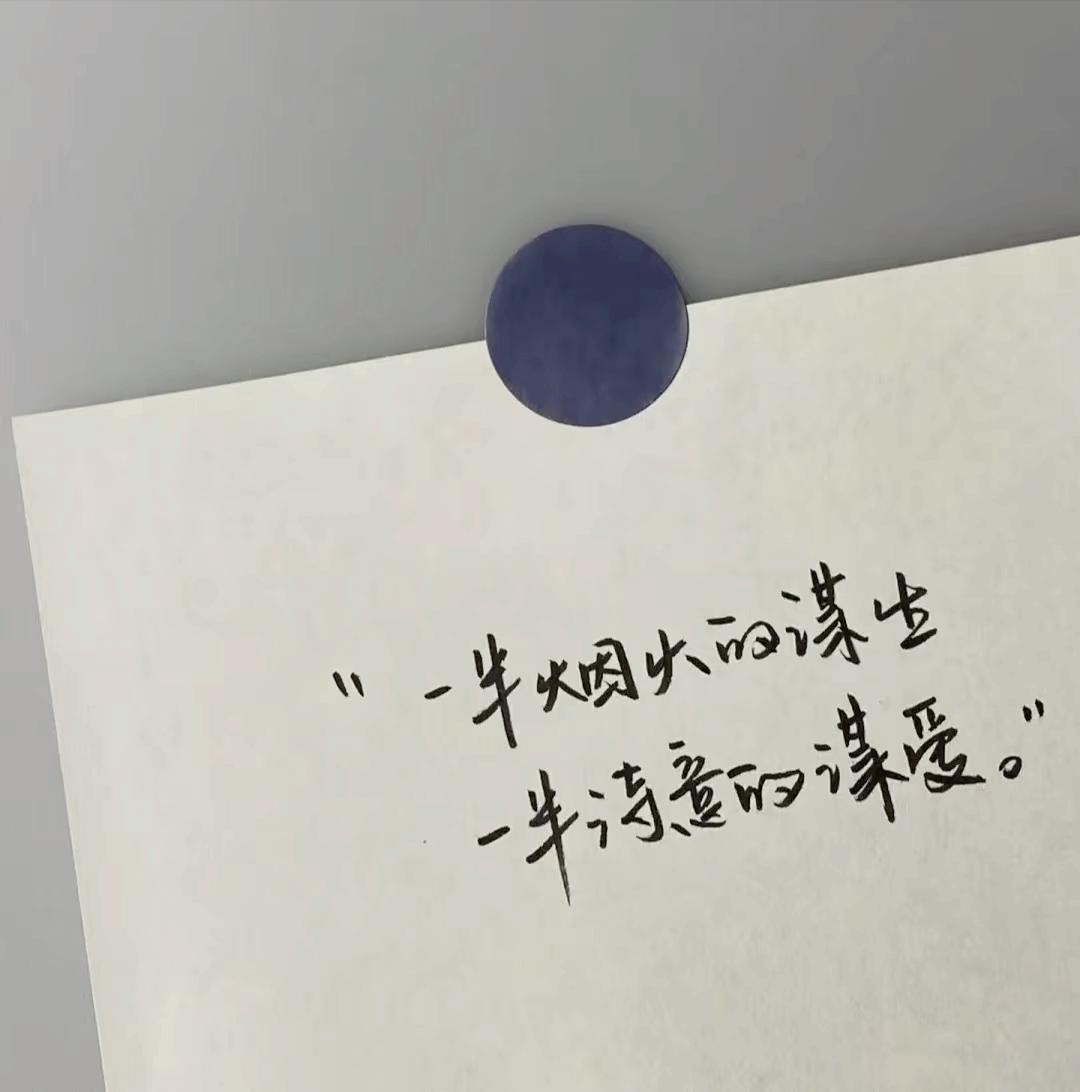 "一半烟火的谋生
一半诗意的谋爱。"